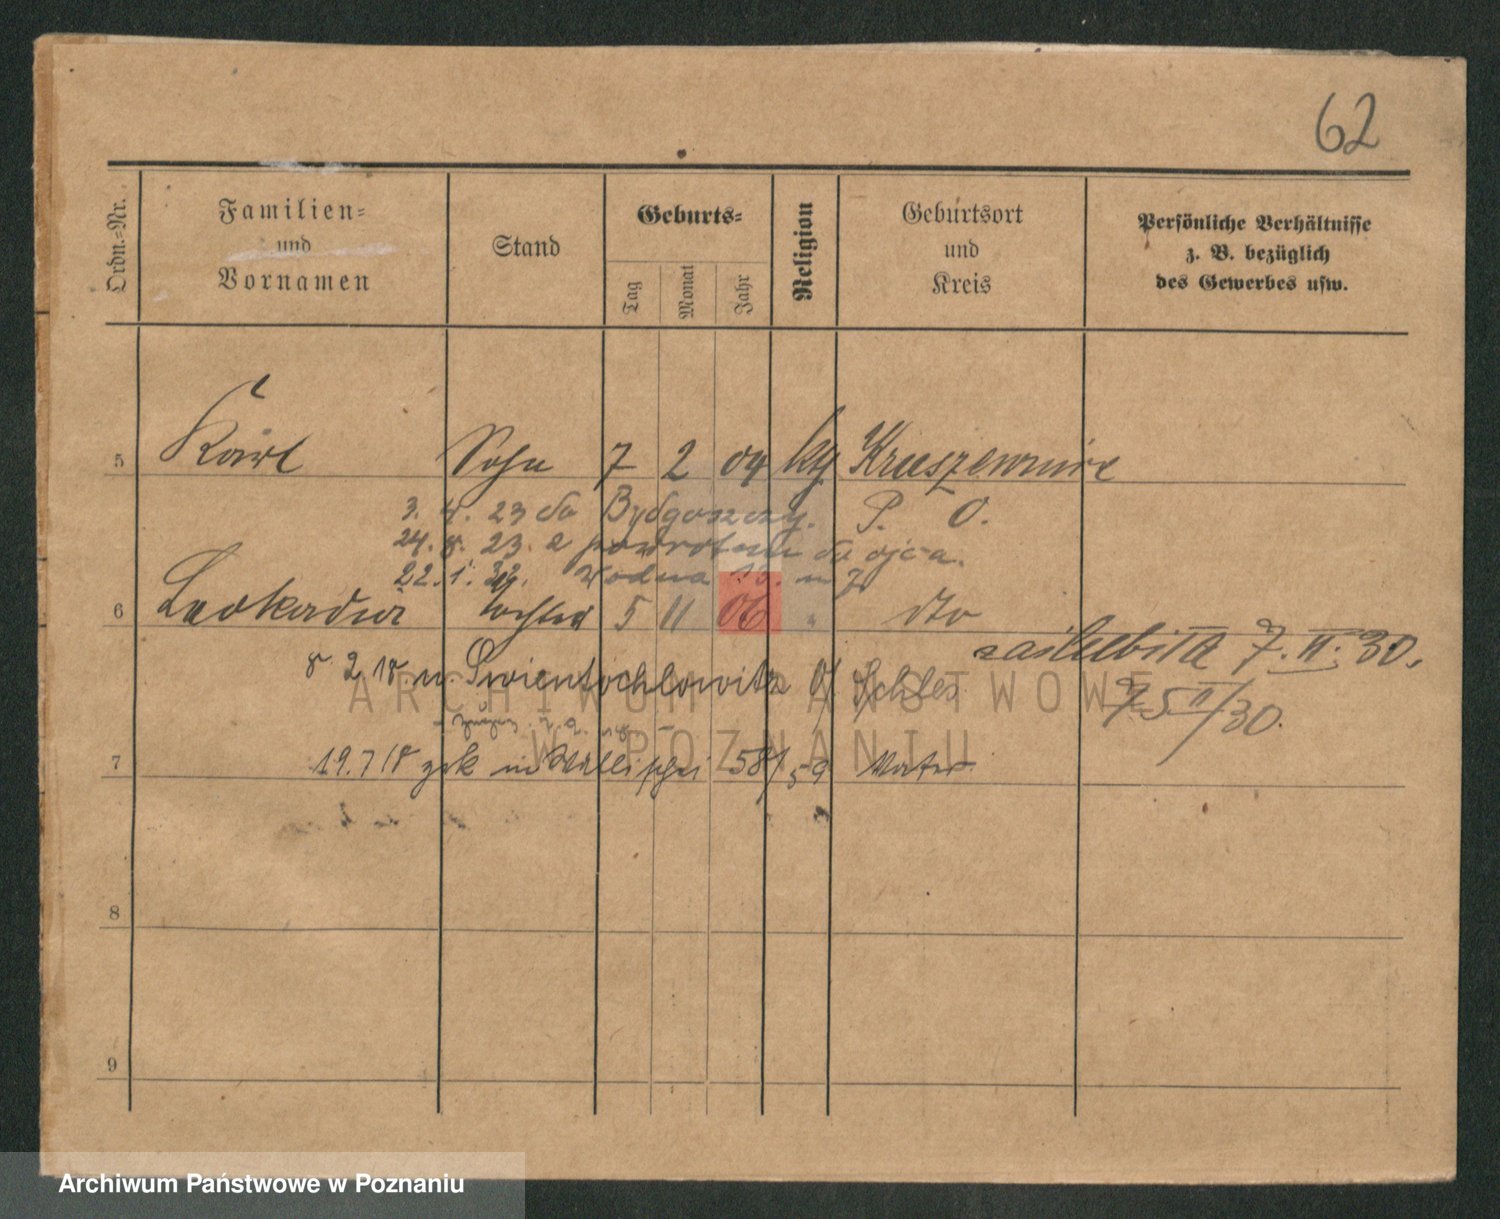 62
Ordn.=Nr.
Familien=
und
Vornamen
Stand
Geburts=
Tag
Monat
Jahr
Religion
Geburtsort
und
Kreis
Persönliche Verhältnisse
z. B. bezüglich
des Gewerbes usw.
5 Karl Sohn 7 2 04 kth
3. 4. 23 do Bydgoszczy. P. O.
24. 8. 23. z powrotem do ojca.
22. 1. Wodna 13. m 7
6 Leokadia Tochter 5 11 06 " dto
zaślubiła 7. II. 30.
8 2 18 n. Swientochlowitz O/ Schles.
75 II/30.
7 19.7 18 zrk in Wallischei 58/59 Vater
8
9
ARCHIWUM PAŃSTWOWE
W POZNANIU
Archiwum Państwowe w Poznaniu